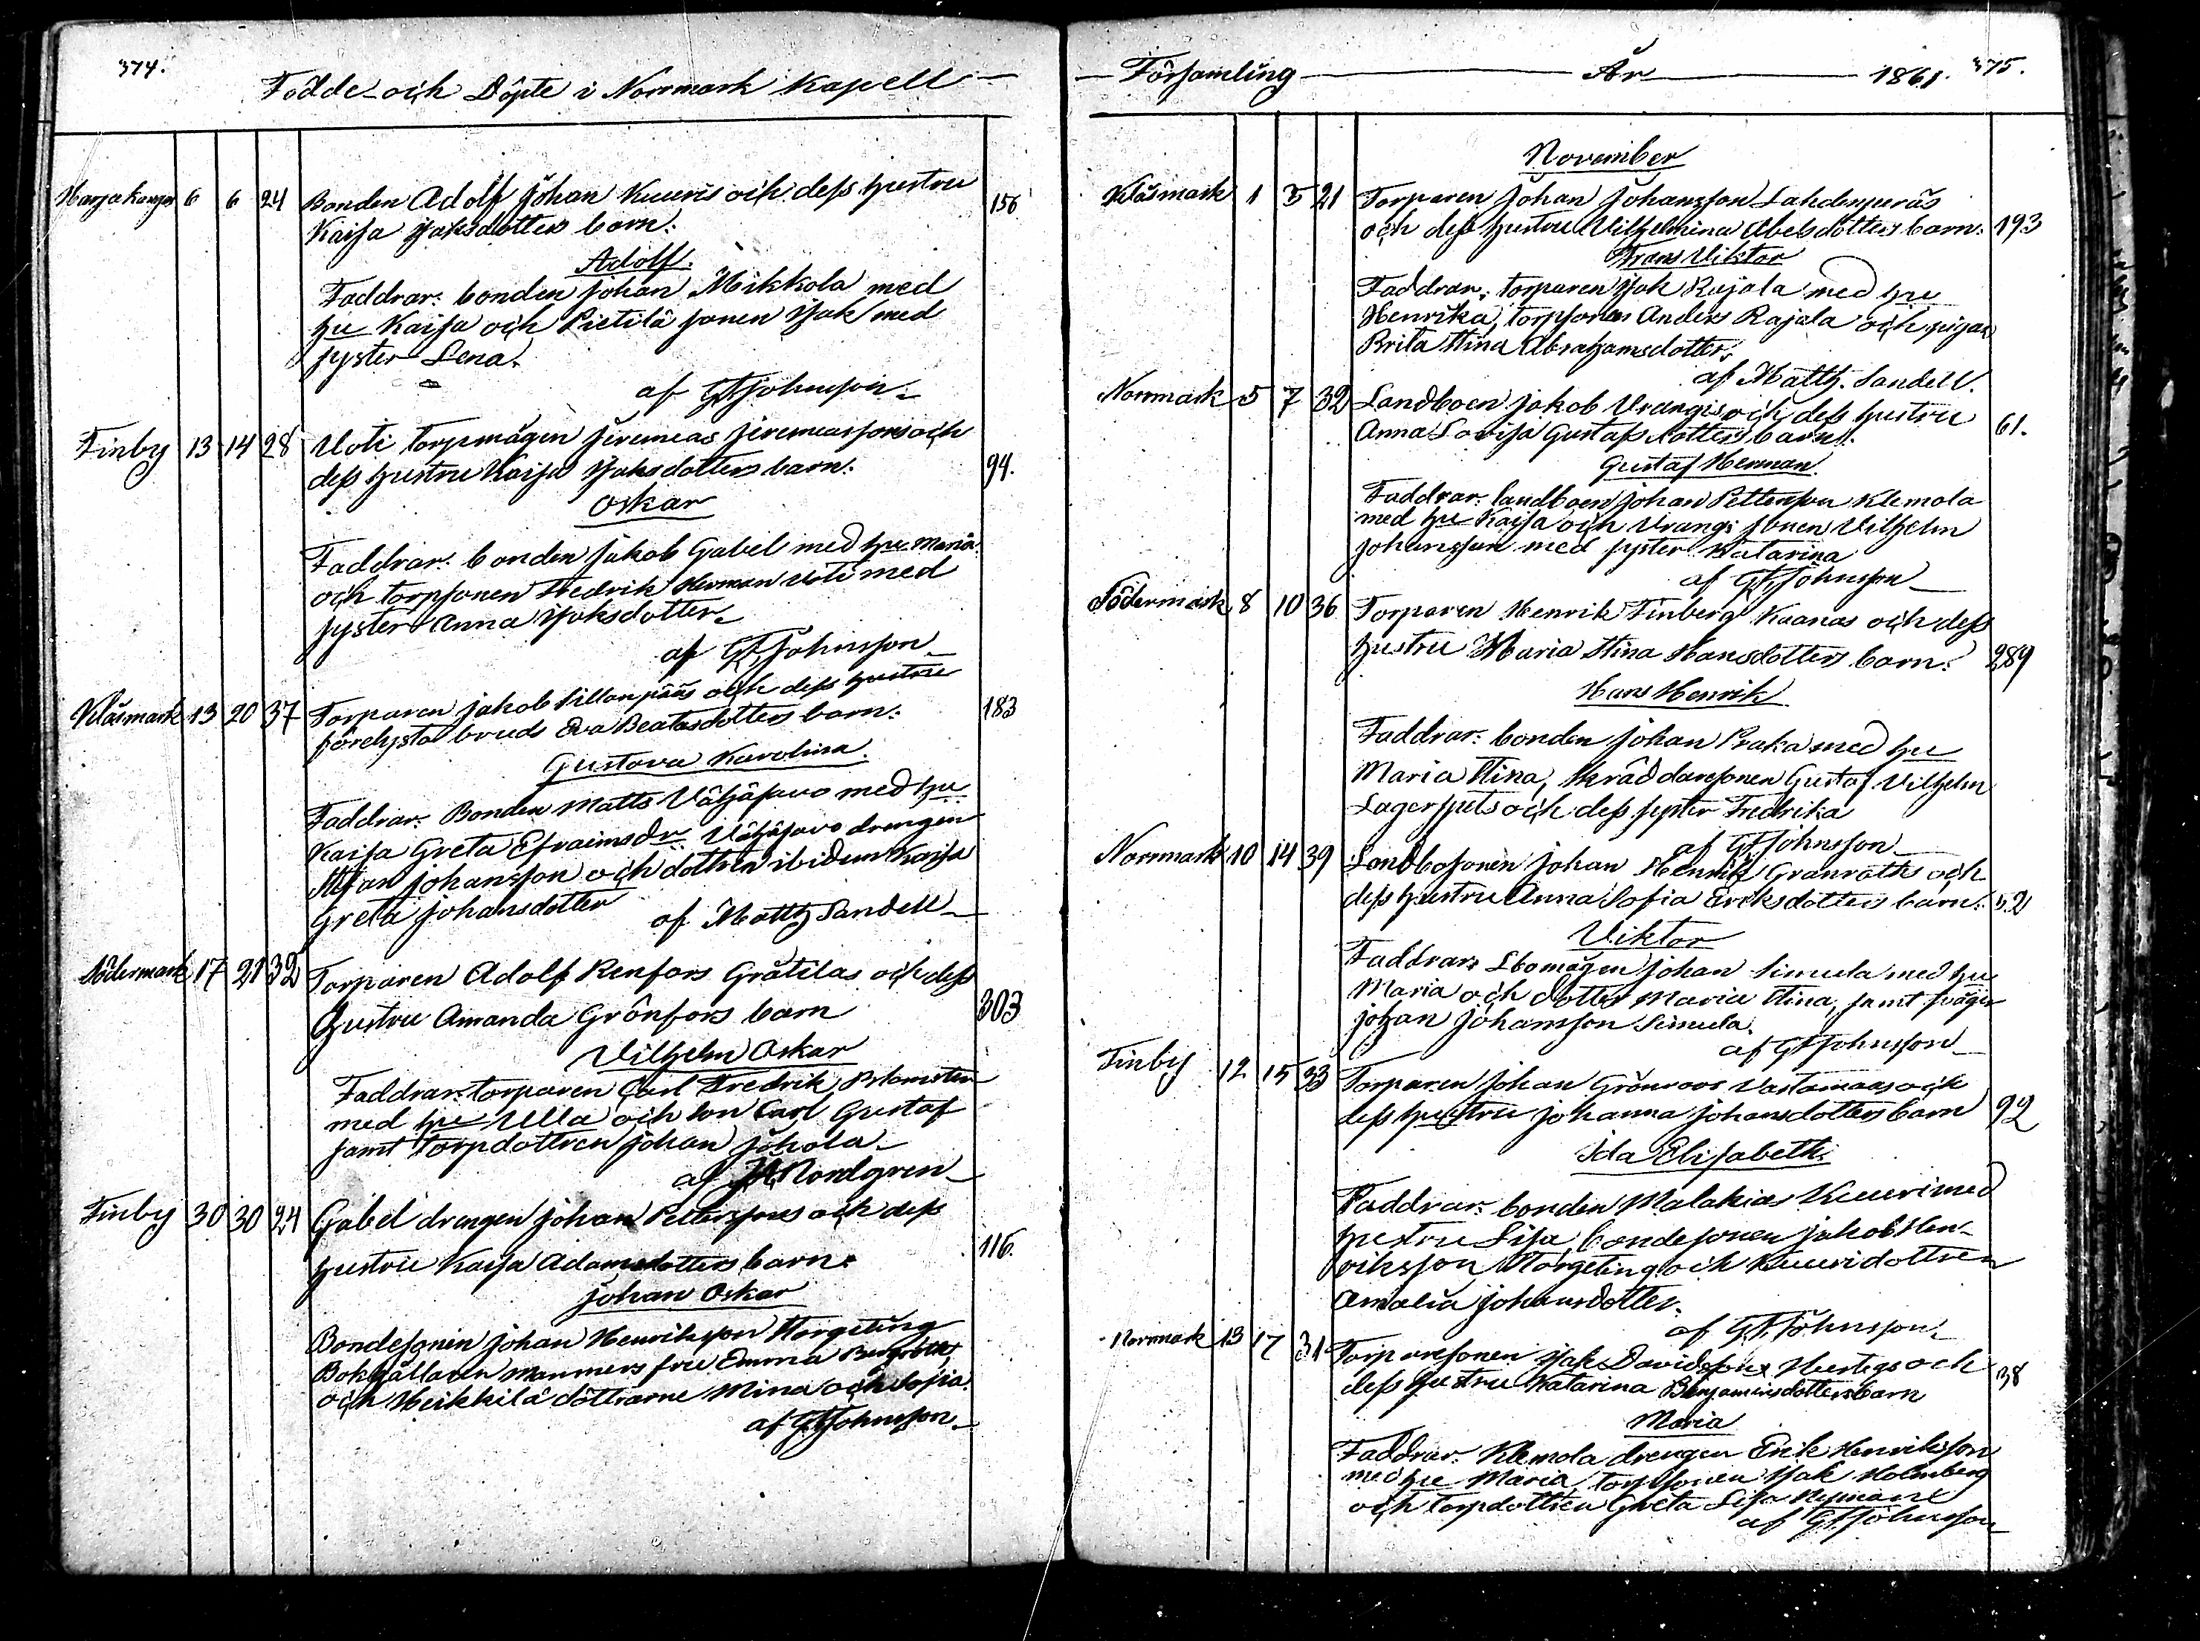 374.
Födde och Döpte i Norrmark Kapell
Harjakangas 6 6 24 Bonden Adolf Johan Kuuris och dess hustru 156
Kaisa Isaksdotters barn.
Adolf.
Faddrar: bonden Johan Mikkola med
hu Kaisa och Pietilä sonen Isak med
syster Lena.
af GFJohnsson
Finby 13 14 28 Uoti torpmågen Jeremias Jeremiassons och
dess hustru Kaisa Isaksdotters barn. 94.
Oskar
Faddrar: bonden Jakob Gabel med hu Maria
och torpsonen Hedrik Herman Uoti med
syster Anna Isaksdotter
af GFJohnsson
Kläsmark 13 20 37 Torparen Jakob Sillanpääs och dess hustru 183
förelysta bruds Eva Beatasdotters barn.
Gustava Karolina.
Faddrar: Bonden Matts Vähäsavo med hu
Kaisa Greta Efraimsdr Vähäsavo drengen
Stefan Johansson och dottren ibidum Kaisa
Greta Johansdotter
af Matth Sandell
Södermark 17 21 32 Torparen Adolf Renfors Gråtilas och dess
hustru Amanda Grönfors barn 303
Vilhelm Oskar
Faddrar: torparen Carl Fredrik Blomster
med hu Ulla och son Carl Gustaf
samt torpdottren Johan Johola
af JANordgren
Finby 30 30 24 Gabel drengen Johan Petterssons och dess
hustru Kaisa Adamsdotters barn. 116.
Johan Oskar
Bondesonen Johan Henriksson Storgeting
Bokhållaren Manners fru Emma Bergroth
och Heikkilä döttrarne Mina och Sofia.
af GFJohnsson
Församling År 1861. 375.
November
Kläsmark 1 3 21 Torparen Johan Johansson Lahdenperäs
och dess hustru Vilhelmina Abelsdotters barn. 193
Frans Viktor
Faddrar: torparen Isak Rajala med hu
Henrika, torpsonen Anders Rajala och pigan
Brita Stina Abrahamsdotter.
af Matth. Sandell.
Norrmark 5 7 32 Landboen Jakob Vrangis och dess hustru
Anna Lovisa Gustafsdotters barn. 61.
Gustaf Herman.
Faddrar: landboen Johan Pettersson Klemola
med hu Kaisa och Vrangi sonen Vilhelm
Johansson med syster Katarina
af GFJohnsson
Södermark 8 10 36 Torparen Henrik Finberg Kaanas och dess
hustru Maria Stina Hansdotters barn. 289
Hans Henrik
Faddrar: bonden Johan Praka med hu
Maria Stina, skräddaresonen Gustaf Vilhelm
Lagerspets och dess syster Fredrika
af GFJohnsson
Norrmark 10 14 39 Landbosonen Johan Henrik Granroths och
dess hustru Anna Sofia Eriksdotters barn. 52
Viktor
Faddrar: Lbomågen Johan Simula med hu
Maria och dotter Maria Stina, samt svåger
Johan Johansson Simula.
af GFJohnsson
Finby 12 15 33 Torparen Johan Grönroos Vastamaas och
dess hustru Johanna Johansdotters barn 92
Ida Elisabeth.
Faddrar: bonden Malakias Kuuri med
hustru Lisa, bondesonen Jakob Hen-
riksson Storgeting och Kuuri dottren
Amalia Johansdotter.
af GFJohnsson
Norrmark 13 17 31 Torparesonen Isak Davidssons Hertigs och
dess hustru Katarina Benjaminsdotters barn 38
Maria
Faddrar: Klemola drengen Erik Henriksson
med hu Maria, torpsonen Isak Holmberg
och torpdottren Greta Lisa Nyman
af GFJohnsson